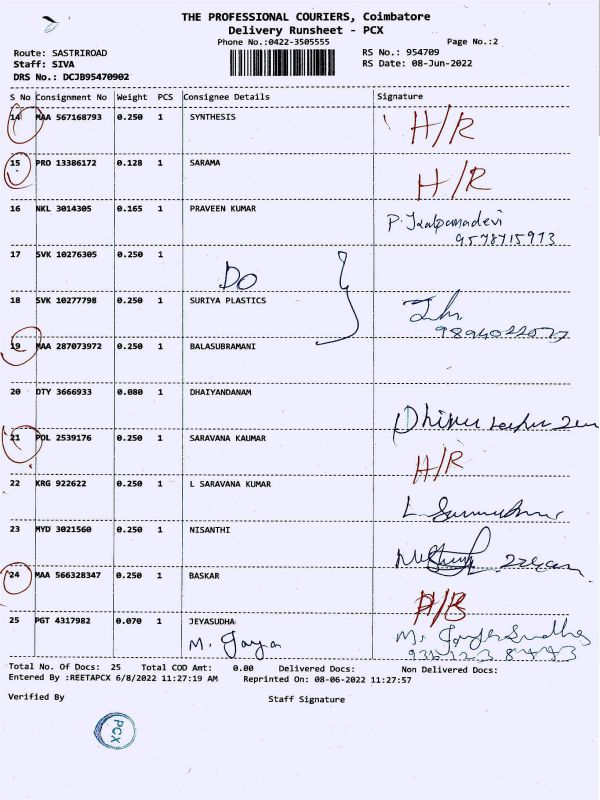 THE PROFESSIONAL COURIERS, Coimbatore
Delivery Runsheet - PCX
Phone No.:0422-3505555
Page No.:2
Route: SASTRIROAD
RS No.: 954709
Staff: SIVA
RS Date: 08-Jun-2022
DRS No.: DCJB95470902
S No Consignment No Weight PCS Consignee Details Signature
14 MAA 567168793 0.250 1 SYNTHESIS H/R
15 PRO 13386172 0.128 1 SARAMA H/R
16 NKL 3014305 0.165 1 PRAVEEN KUMAR P. Kalpanadevi
9578715973
17 SVK 10276305 0.250 1
Do
18 SVK 10277798 0.250 1 SURIYA PLASTICS
19 MAA 287073972 0.250 1 BALASUBRAMANI
20 DTY 3666933 0.080 1 DHAIYANDANAM
21 POL 2539176 0.250 1 SARAVANA KAUMAR H/R
22 KRG 922622 0.250 1 L SARAVANA KUMAR
23 MYD 3021560 0.250 1 NISANTHI
24 MAA 566328347 0.250 1 BASKAR H/R
25 PGT 4317982 0.070 1 JEYASUDHA
M. Jaya
Total No. Of Docs: 25 Total COD Amt: 0.00 Delivered Docs: Non Delivered Docs:
Entered By :REETAPCX 6/8/2022 11:27:19 AM Reprinted On: 08-06-2022 11:27:57
Verified By Staff Signature
PCX